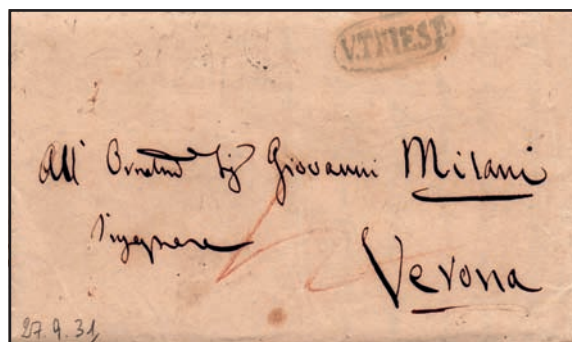 V.TRIEST.
All' Ornatmo Sig Giovanni Milani
Ingegnere
Verona
27.9.31